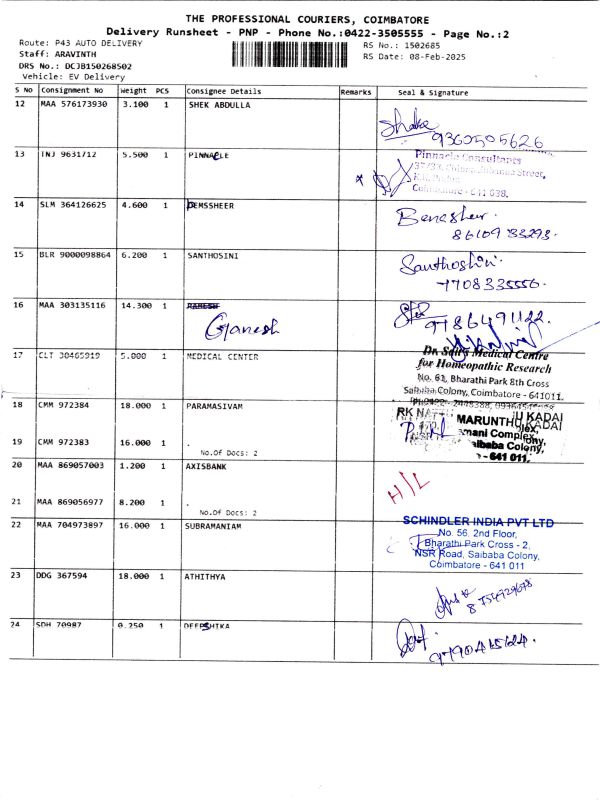 THE PROFESSIONAL COURIERS, COIMBATORE
Delivery Runsheet - PNP - Phone No.:0422-3505555 - Page No.:2
Route: P43 AUTO DELIVERY RS No.: 1502685
Staff: ARAVINTH RS Date: 08-Feb-2025
DRS No.: DCJB150268502
Vehicle: EV Delivery
S No Consignment No Weight PCS Consignee Details Remarks Seal & Signature
12 MAA 576173930 3.100 1 SHEK ABDULLA
9362505626
13 INJ 9631712 5.500 1 PINNACLE Pinnacle Consultants
Street,
Coimbatore - 641 038.
14 SLM 364126625 4.600 1 DEMSSHEER
15 BLR 9000098864 6.200 1 SANTHOSINI Santhoshini
7708335556.
16 MAA 303135116 14.300 1 RAMESH
Ganesh 9786491122
17 CLT 30465919 5.000 1 MEDICAL CENTER Medical Centre
for Homeopathic Research
No. 61, Bharathi Park 8th Cross
Saibaba Colony, Coimbatore - 641011.
18 CMM 972384 18.000 1 PARAMASIVAM
RK MARUNTHU KADAI
19 CMM 972383 16.000 1 .
No.Of Docs: 2
Saibaba Colony,
- 641 011.
20 MAA 869057003 1.200 1 AXISBANK
H/L
21 MAA 869056977 8.200 1 .
No.Of Docs: 2
22 MAA 704973897 16.000 1 SUBRAMANIAM SCHINDLER INDIA PVT LTD
No. 56. 2nd Floor,
Bharathi Park Cross - 2,
NSR Road, Saibaba Colony,
Coimbatore - 641 011
23 DDG 367594 18.000 1 ATHITHYA
24 SDH 70987 0.250 1 DEEPSHIKA